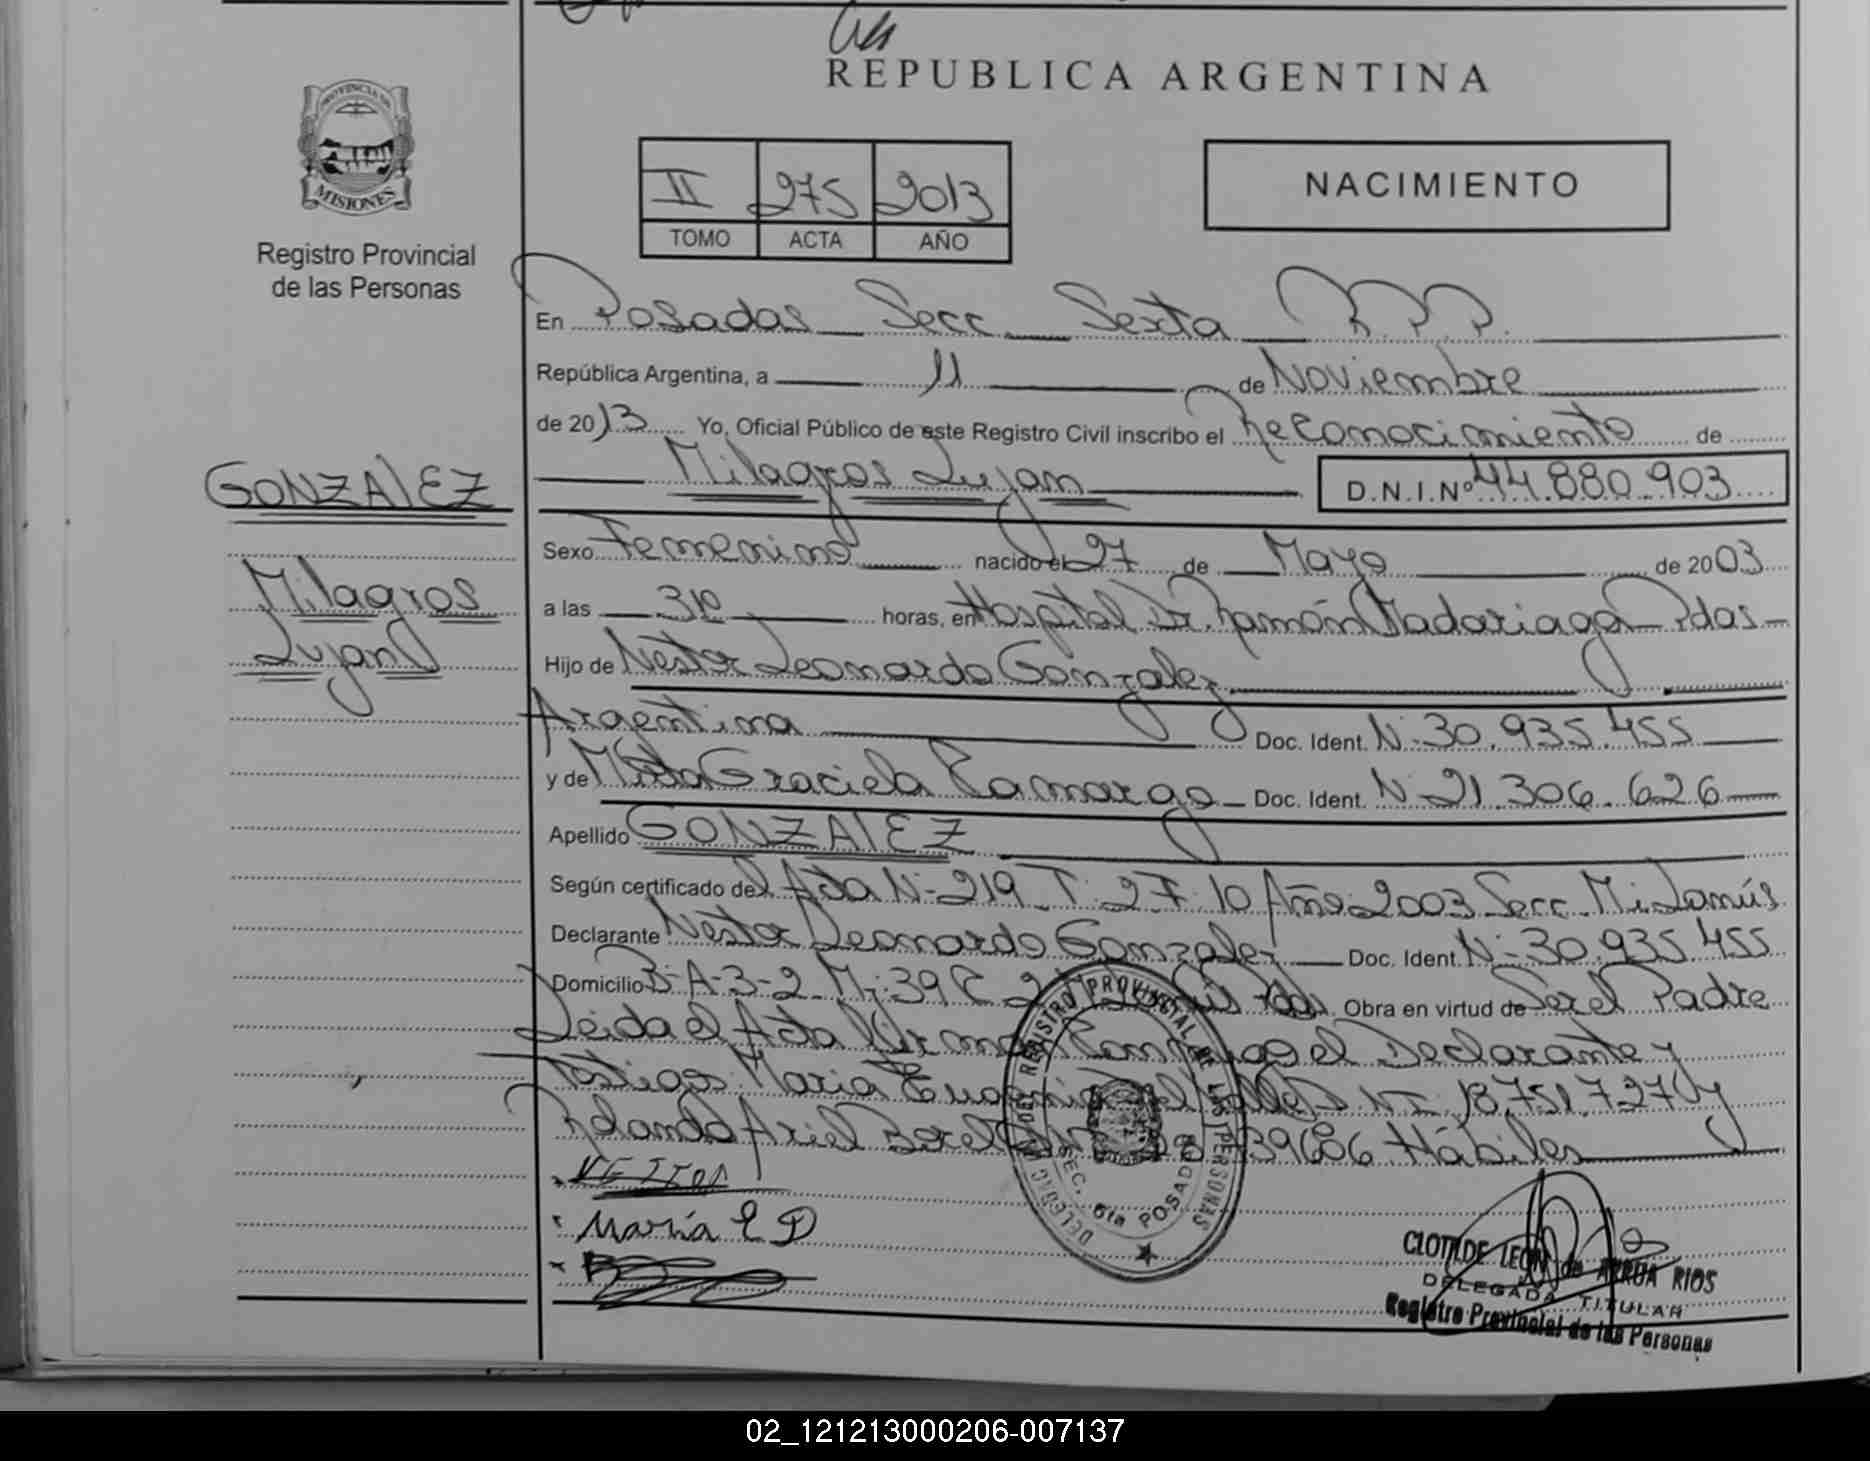 REPUBLICA ARGENTINA
PROVINCIA DE
MISIONES
Registro Provincial
de las Personas
II 275 2013
TOMO ACTA AÑO
NACIMIENTO
En Posadas Secc. Sexta R.P.P.
República Argentina, a 11 de Noviembre
de 2013 Yo, Oficial Público de este Registro Civil inscribo el Reconocimiento de
Milagros Lujan D.N.I.Nº 44.880.903
GONZALEZ
Milagros
Lujan
Sexo Femenino nacido el 27 de Mayo de 2003
a las 310 horas, en Hospital Dr. Ramón Madariaga Pdas-
Hijo de Nestor Leonardo Gonzalez
Argentina Doc. Ident. N: 30.935.455
y de Graciela Camargo Doc. Ident. N: 21.306.626
Apellido GONZALEZ
Según certificado del Acta N: 219 T: 2 F: 10 Año 2003 Secc. Mi Lanús
Declarante Nestor Leonardo Gonzalez Doc. Ident. N: 30.935.455
Domicilio B: A-3-2 M: 39 C Obra en virtud de Ser el Padre
Leida el Acta el Declarante y
Testigos Maria Eugenia 18.751.727 y
Rolando Ariel Hábiles
María E D
DELEGAC DEL REGISTRO PROVINCIAL DE LAS PERSONAS
SEC. 6ta POSADA
CLOTILDE LEON de ARRUA RIOS
DELEGADA TITULAR
Registro Provincial de las Personas
02_121213000206-007137